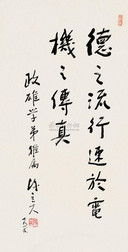 德之流行速於電
機之傳真
政雄学弟雅属
陳立夫